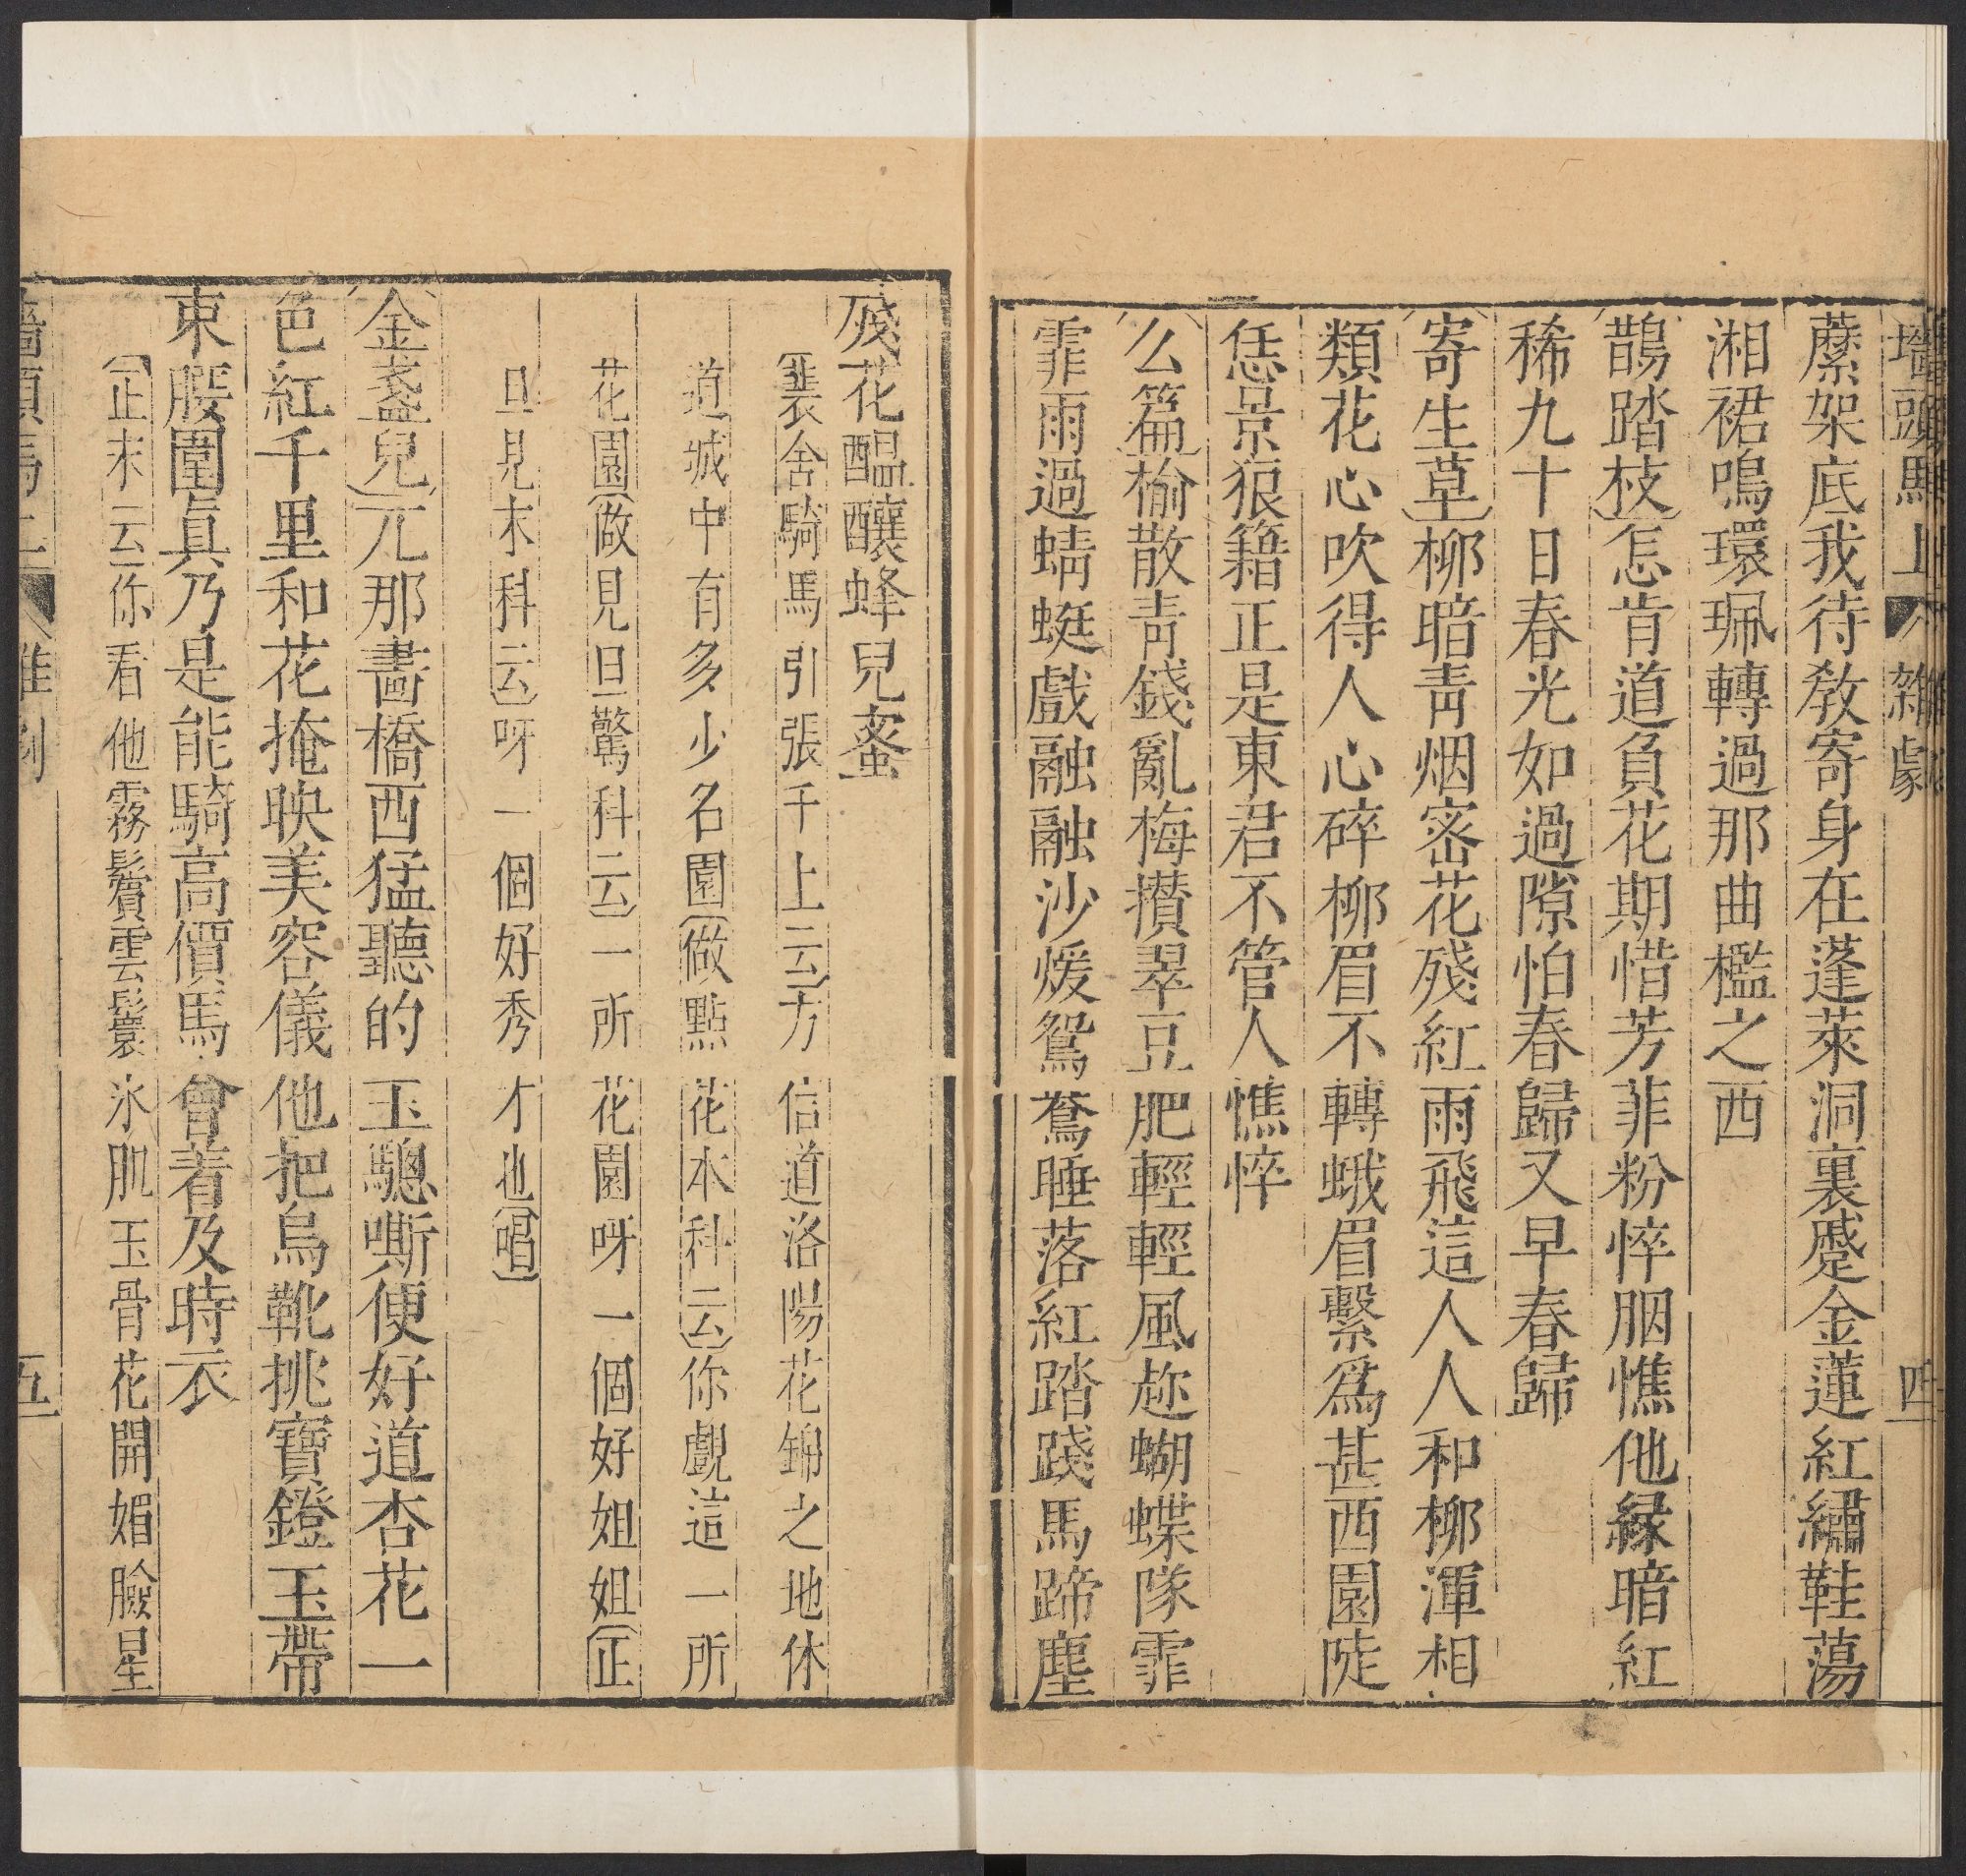 墻頭馬上 雜劇 四
蘪架底我待敎寄身在蓬萊洞裏蹙金蓮紅繡鞋蕩
湘裙鳴環珮轉過那曲檻之西
鵲踏枝怎肯道負花期惜芳菲粉悴胭憔他緑暗紅
稀九十日春光如過隙怕春歸又早春歸
寄生草柳暗靑烟密花殘紅雨飛這人人和柳渾相
類花心吹得人心碎柳眉不轉蛾眉繫爲甚西園陡
恁景狼籍正是東君不管人憔悴
么篇榆散靑錢亂梅攢翠豆肥輕輕風趂蝴蝶隊霏
霏雨過蜻蜓戲融融沙煖鴛鴦睡落紅踏踐馬蹄塵
殘花醖釀蜂兒蜜
裴舍騎馬引張千上云方信道洛陽花錦之地休
道城中有多少名園做點花木科云你覷這一所
花園做見旦驚科云一所花園呀一個好姐姐正
旦見末科云呀一個好秀才也唱
金盞兒兀那畵橋西猛聽的玉驄嘶便好道杏花一
色紅千里和花掩映美容儀他把烏靴挑寶鐙玉帶
束腰圍眞乃是能騎高價馬會着及時衣
正末云你看他霧鬢雲鬟氷肌玉骨花開媚臉星
墻頭馬上 雜劇 五